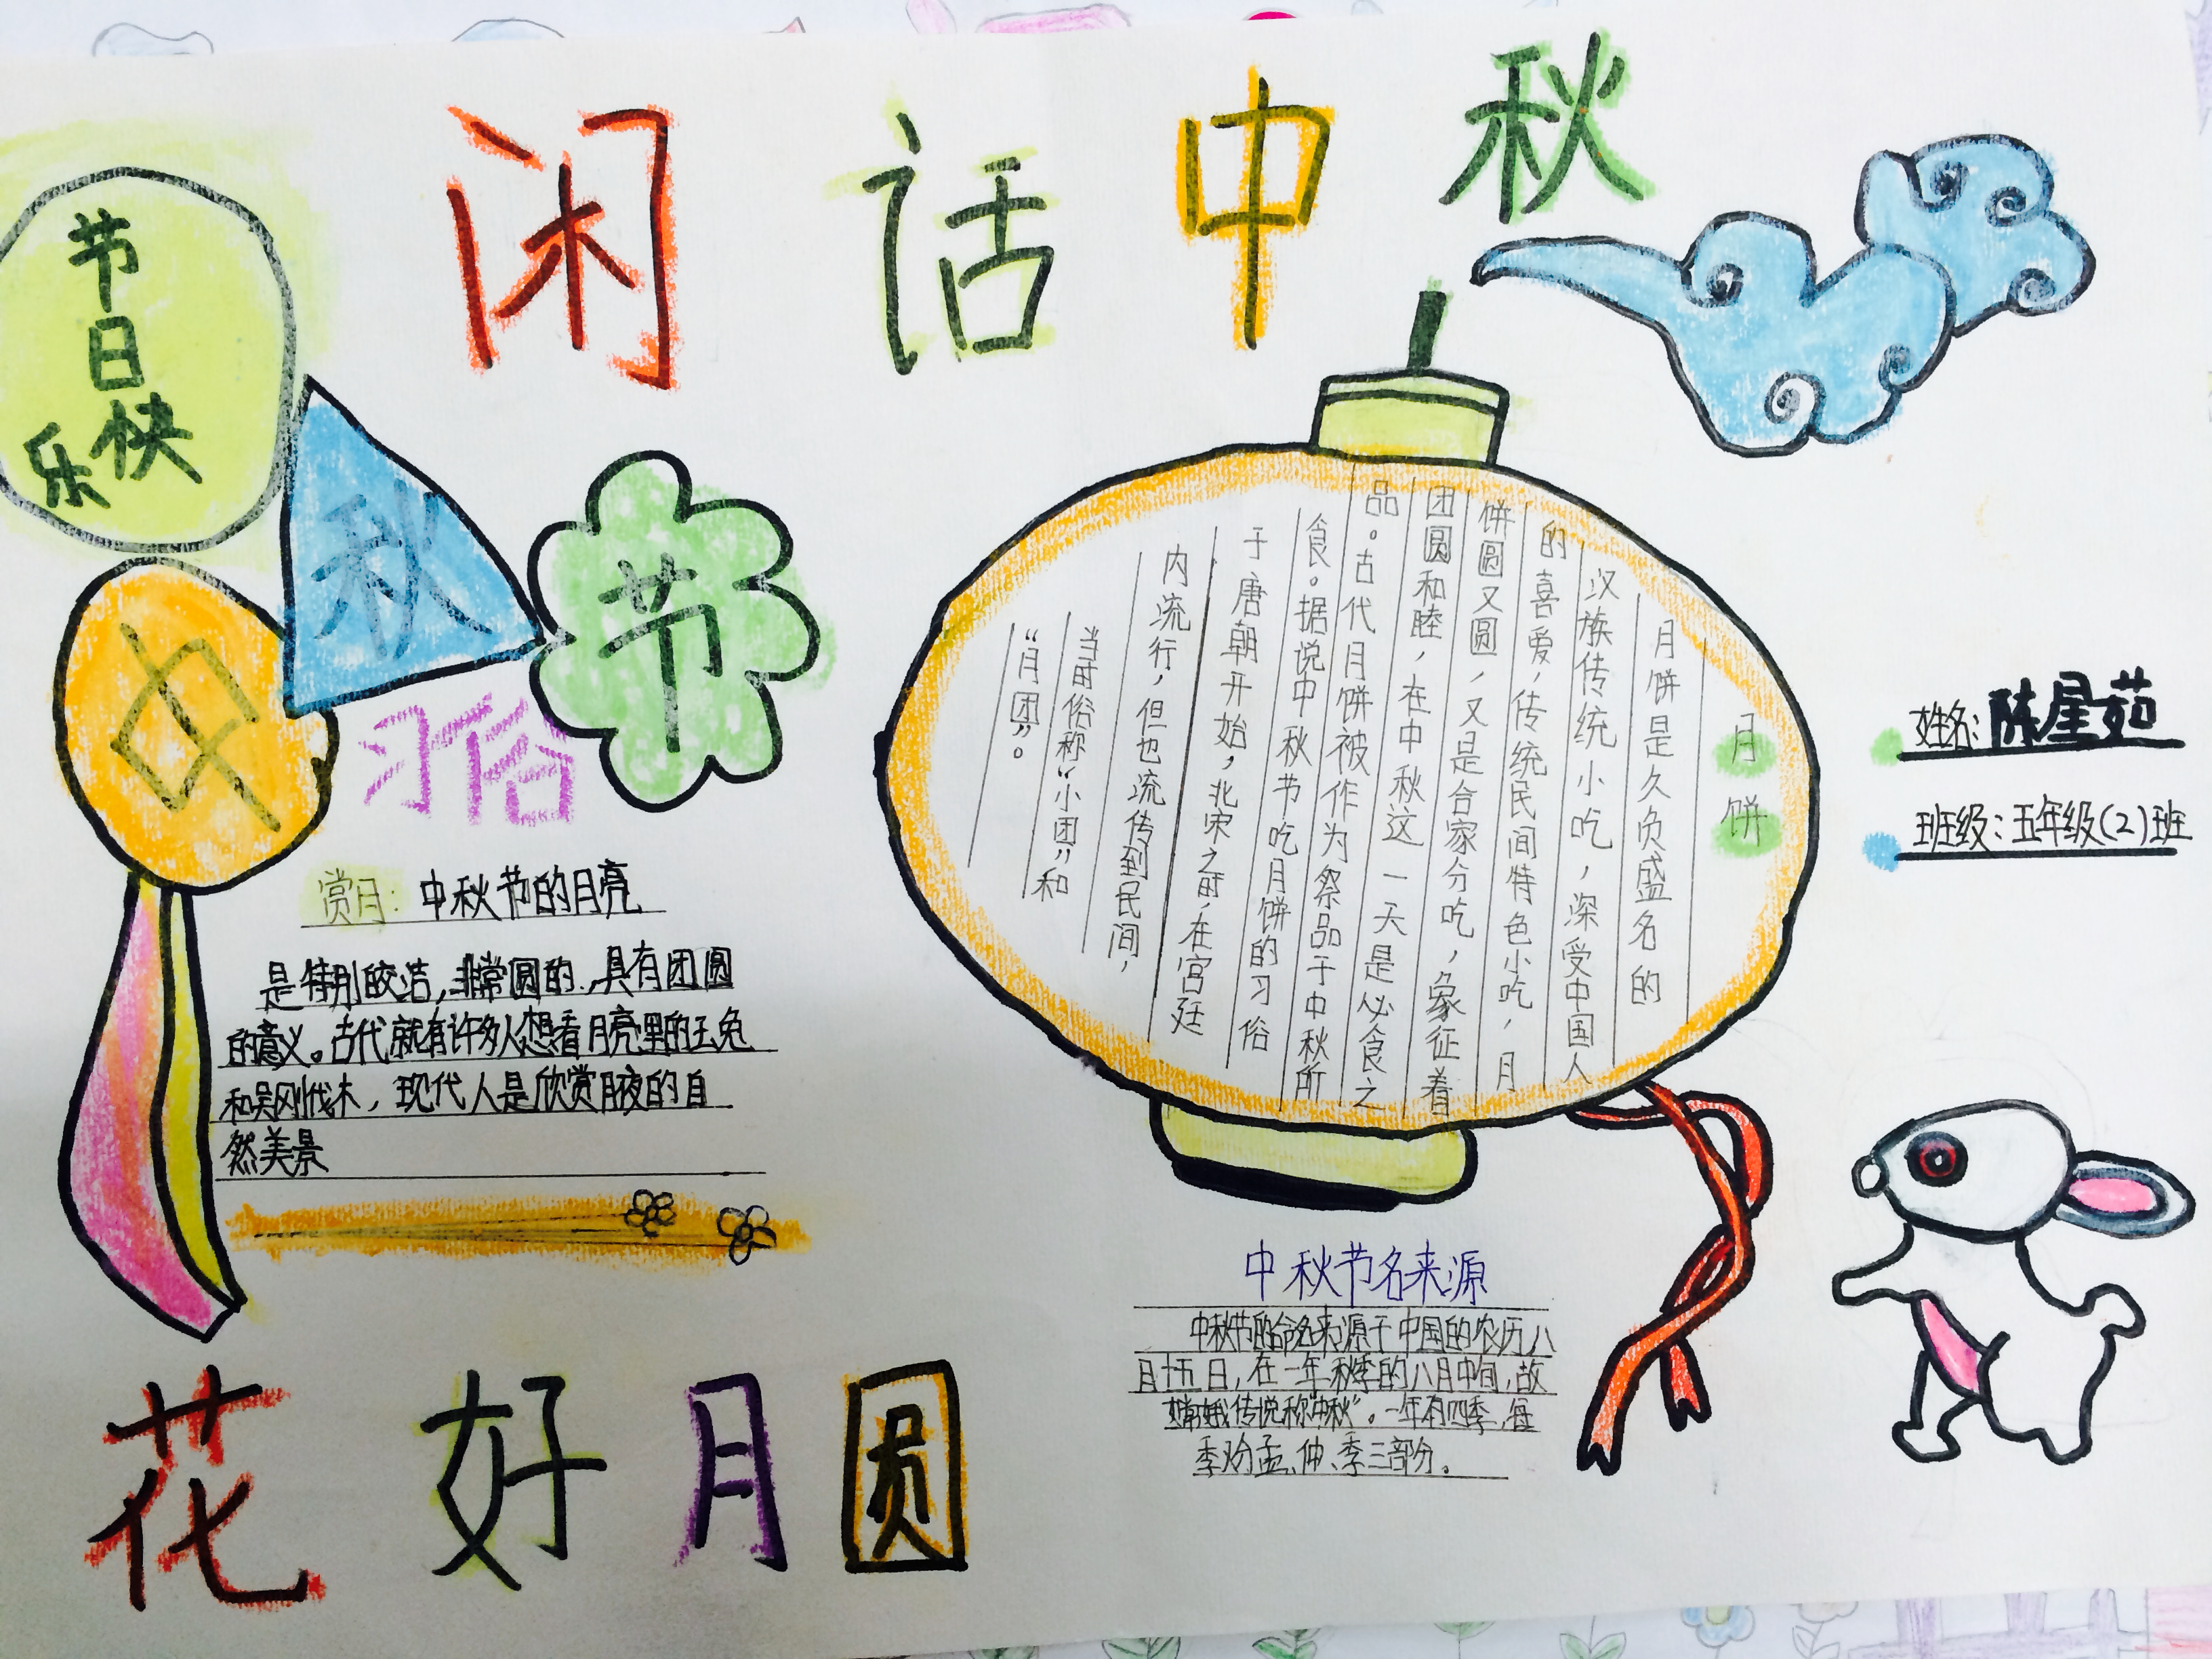 闲话中秋
节日快
乐
中
秋
节
习俗
赏月：中秋节的月亮
是特别皎洁，非常圆的，具有团圆
的意义。古代就有许多人想看月亮里的玉兔
和吴刚伐木，现代人是欣赏月夜的自
然美景
月饼
月饼是久负盛名的
汉族传统小吃，深受中国人
的喜爱，传统民间特色小吃，月
饼圆又圆，又是合家分吃，象征着
团圆和睦，在中秋这一天是必食之
品。古代月饼被作为祭品于中秋所
食。据说中秋节吃月饼的习俗
于唐朝开始，北宋之时，在宫廷
内流行，但也流传到民间，
当时俗称“小团”和
“月团”。
姓名：陈星茹
班级：五年级（2）班
中秋节名来源
中秋节的命名来源于中国的农历八
月十五日，在一年秋季的八月中间，故
嫦娥传说称“中秋”。一年有四季，每
季又分孟、仲、季三部分。
花好月圆